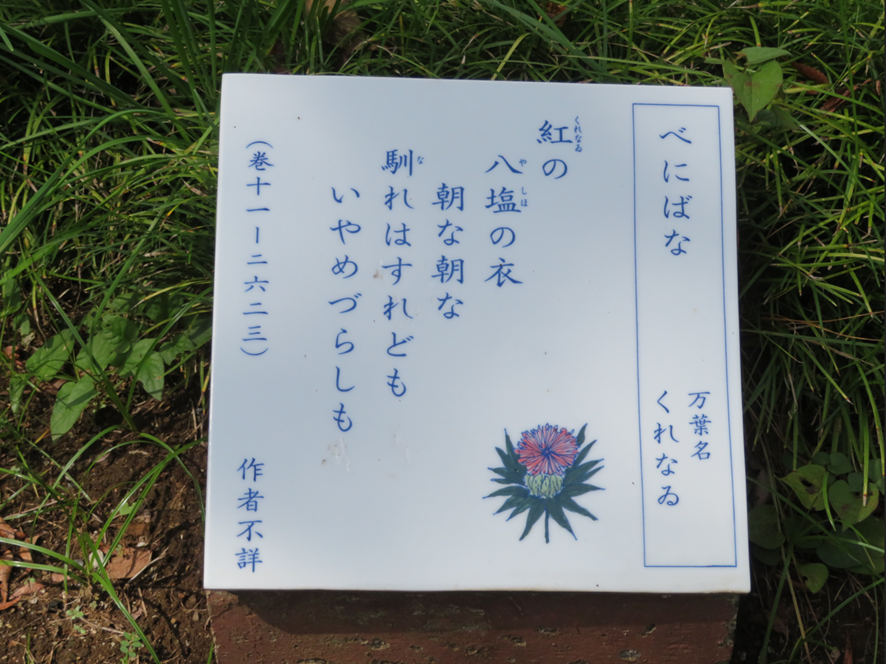 べにばな
万葉名
くれなゐ
紅の
くれなゐ
八塩の衣
やしほ
朝な朝な
馴れはすれども
な
いやめづらしも
(巻十一ー二六二三)
作者不詳